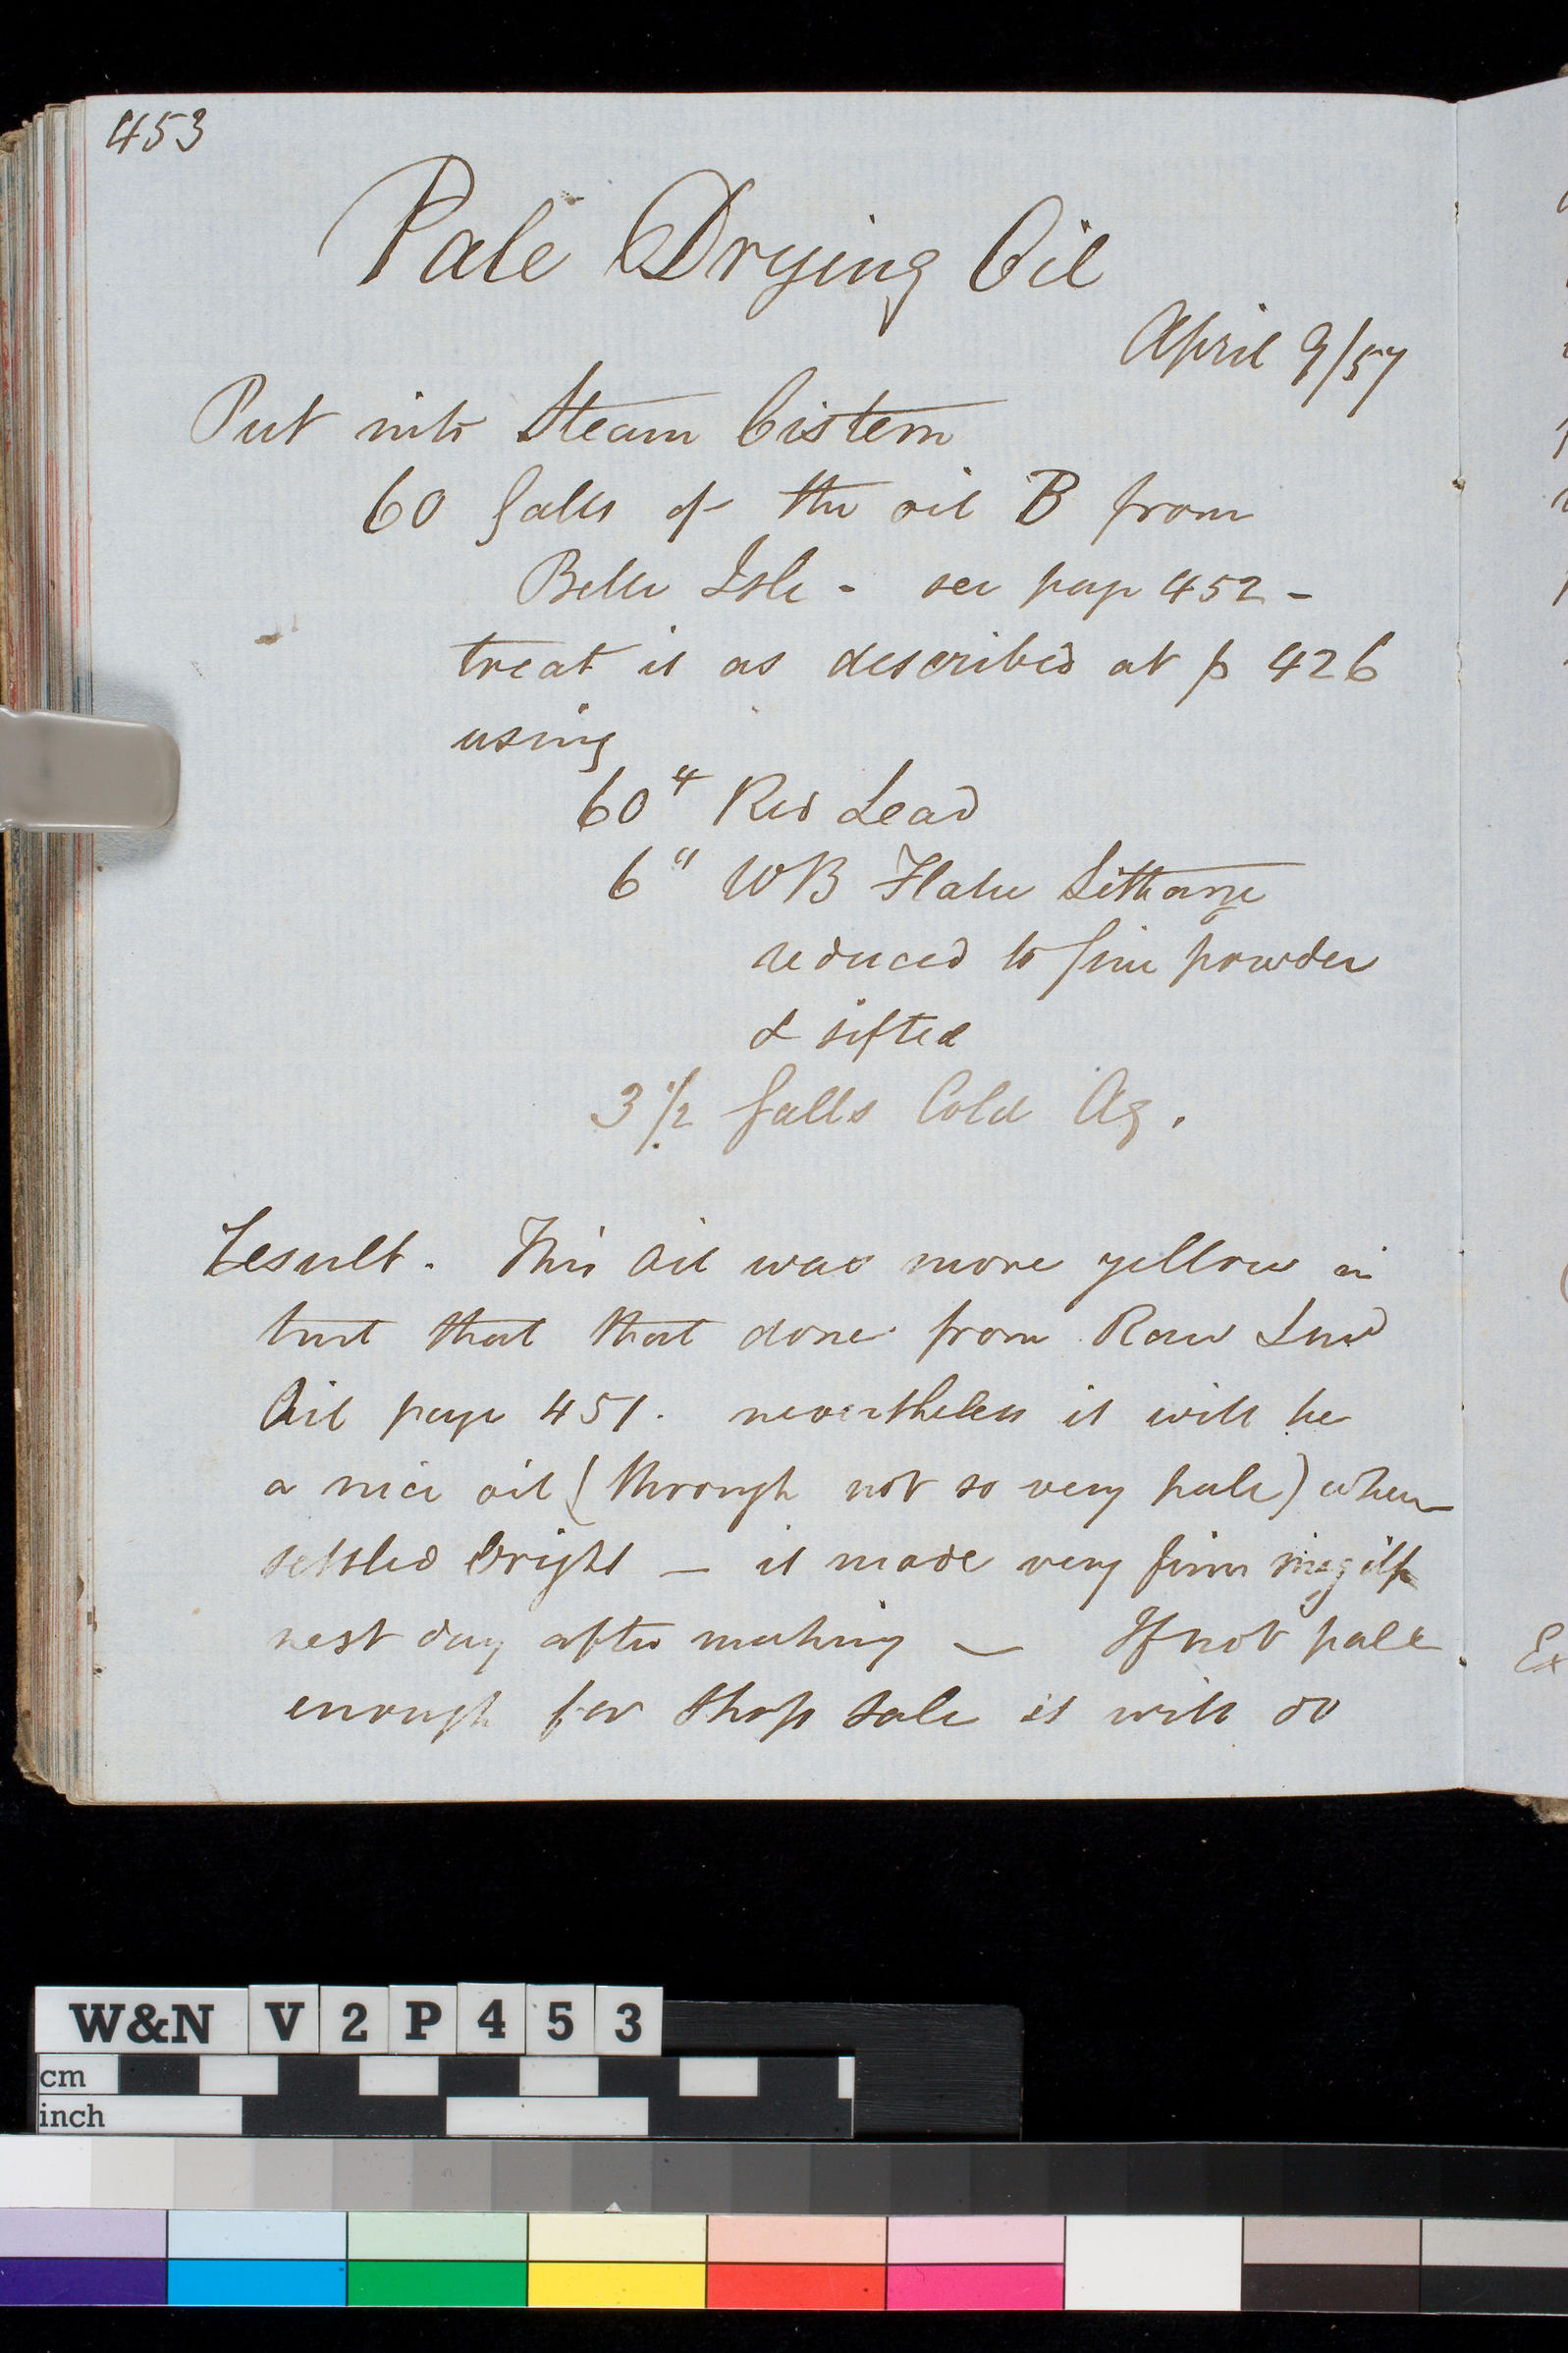 453
Pale Drying Oil
April 9/57
Put into Steam Cistern
60 galls of the oil B from
Belle Isle - see page 452 -
treat it as described at p 426
using
60" Red Lead
6" WB Flake Litharge
reduced to fine powder
& sifted
3 1/2 galls Cold Aq.
Result. This oil was more yellow in
tint that that done from Raw Lnsd
Oil page 451. nevertheless it will be
a nice oil (through not so very pale) when
settled bright — it made very firm megilp
next day after making — If not pale
enough for shop sale it will do
Ex
W&N V 2 P 4 5 3
cm
inch